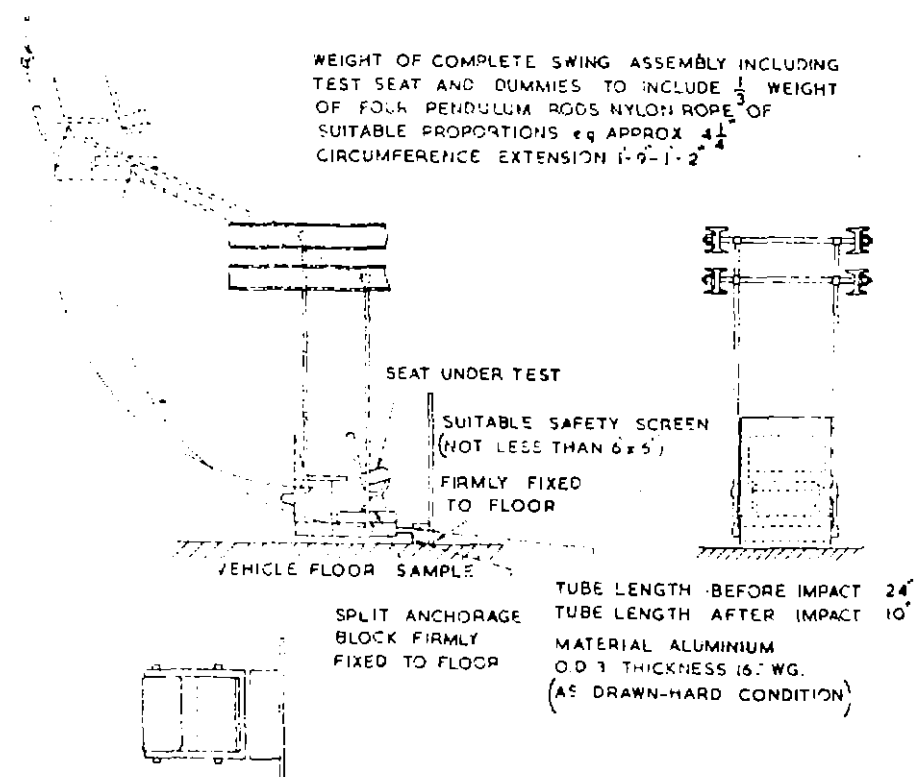 WEIGHT OF COMPLETE SWING ASSEMBLY INCLUDING
TEST SEAT AND DUMMIES TO INCLUDE 1/3 WEIGHT
OF FOUR PENDULUM RODS NYLON ROPE OF
SUITABLE PROPORTIONS eg APPROX 4 1/4"
CIRCUMFERENCE EXTENSION
SEAT UNDER TEST
SUITABLE SAFETY SCREEN
(NOT LESS THAN 6' x 5')
FIRMLY FIXED
TO FLOOR
VEHICLE FLOOR SAMPLE
SPLIT ANCHORAGE
BLOCK FIRMLY
FIXED TO FLOOR
TUBE LENGTH BEFORE IMPACT 24"
TUBE LENGTH AFTER IMPACT 10"
MATERIAL ALUMINIUM
O.D 3 THICKNESS WG.
(AS DRAWN-HARD CONDITION)